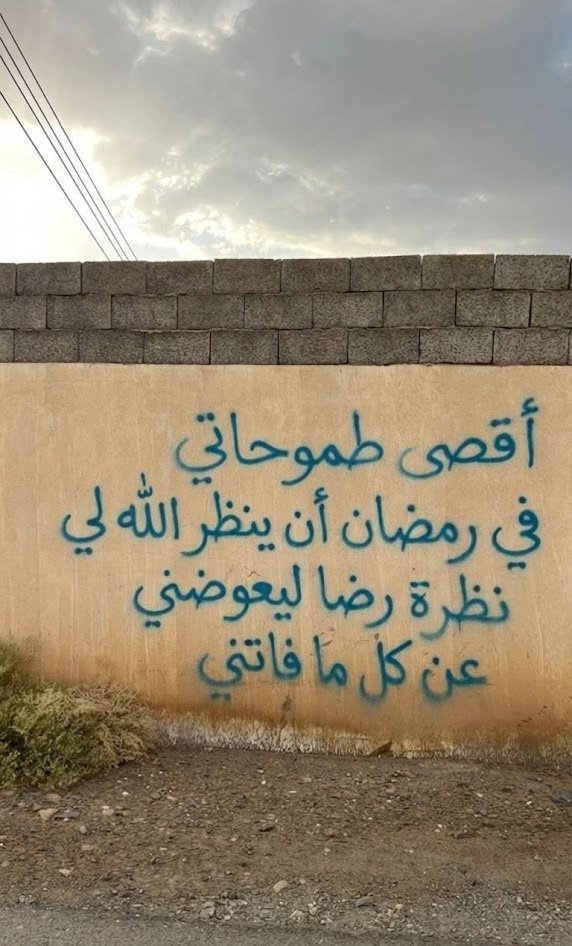 أقصى طموحاتي
في رمضان أن ينظر الله لي
نظرة رضا ليعوضني
عن كل ما فاتني